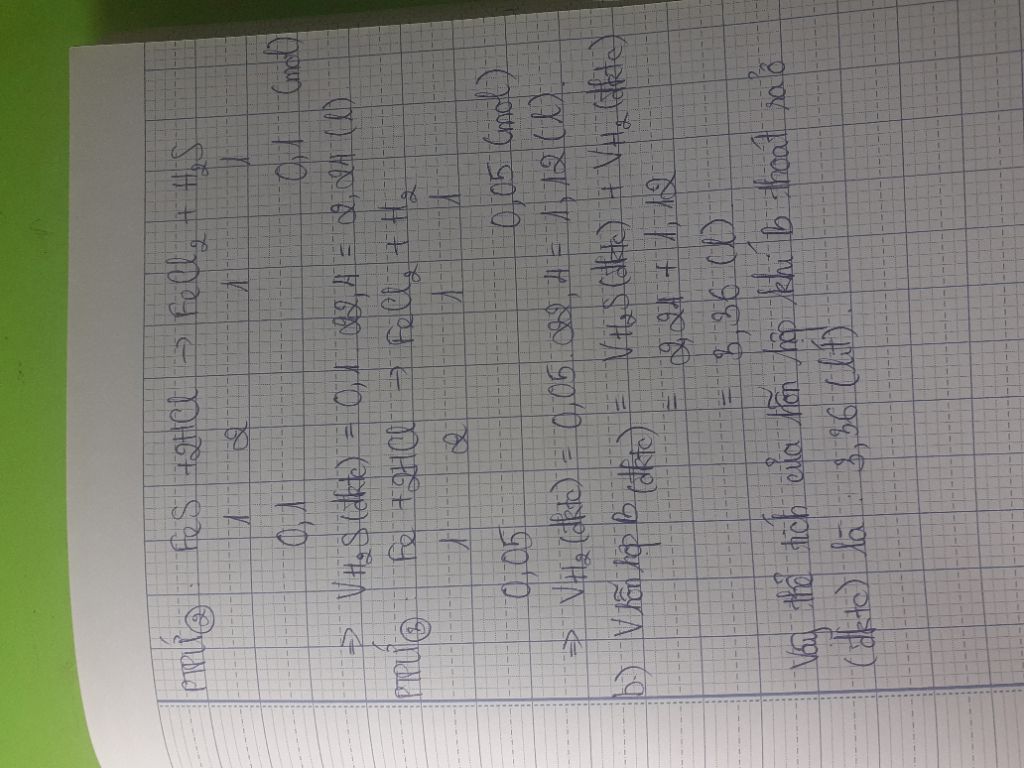 PTPƯ ②: FeS + 2HCl → FeCl₂ + H₂S
1 2 1 1
0,1 0,1 (mol)
⇒ VH₂S (đktc) = 0,1 . 22,4 = 2,24 (l)
PTPƯ ③: Fe + 2HCl → FeCl₂ + H₂
1 2 1 1
0,05 0,05 (mol)
⇒ VH₂ (đktc) = 0,05 . 22,4 = 1,12 (l)
b) Vhỗn hợp B (đktc) = VH₂S (đktc) + VH₂ (đktc)
= 2,24 + 1,12
= 3,36 (l)
Vậy thể tích của hỗn hợp khí B thoát ra ở
(đktc) là : 3,36 (lít).